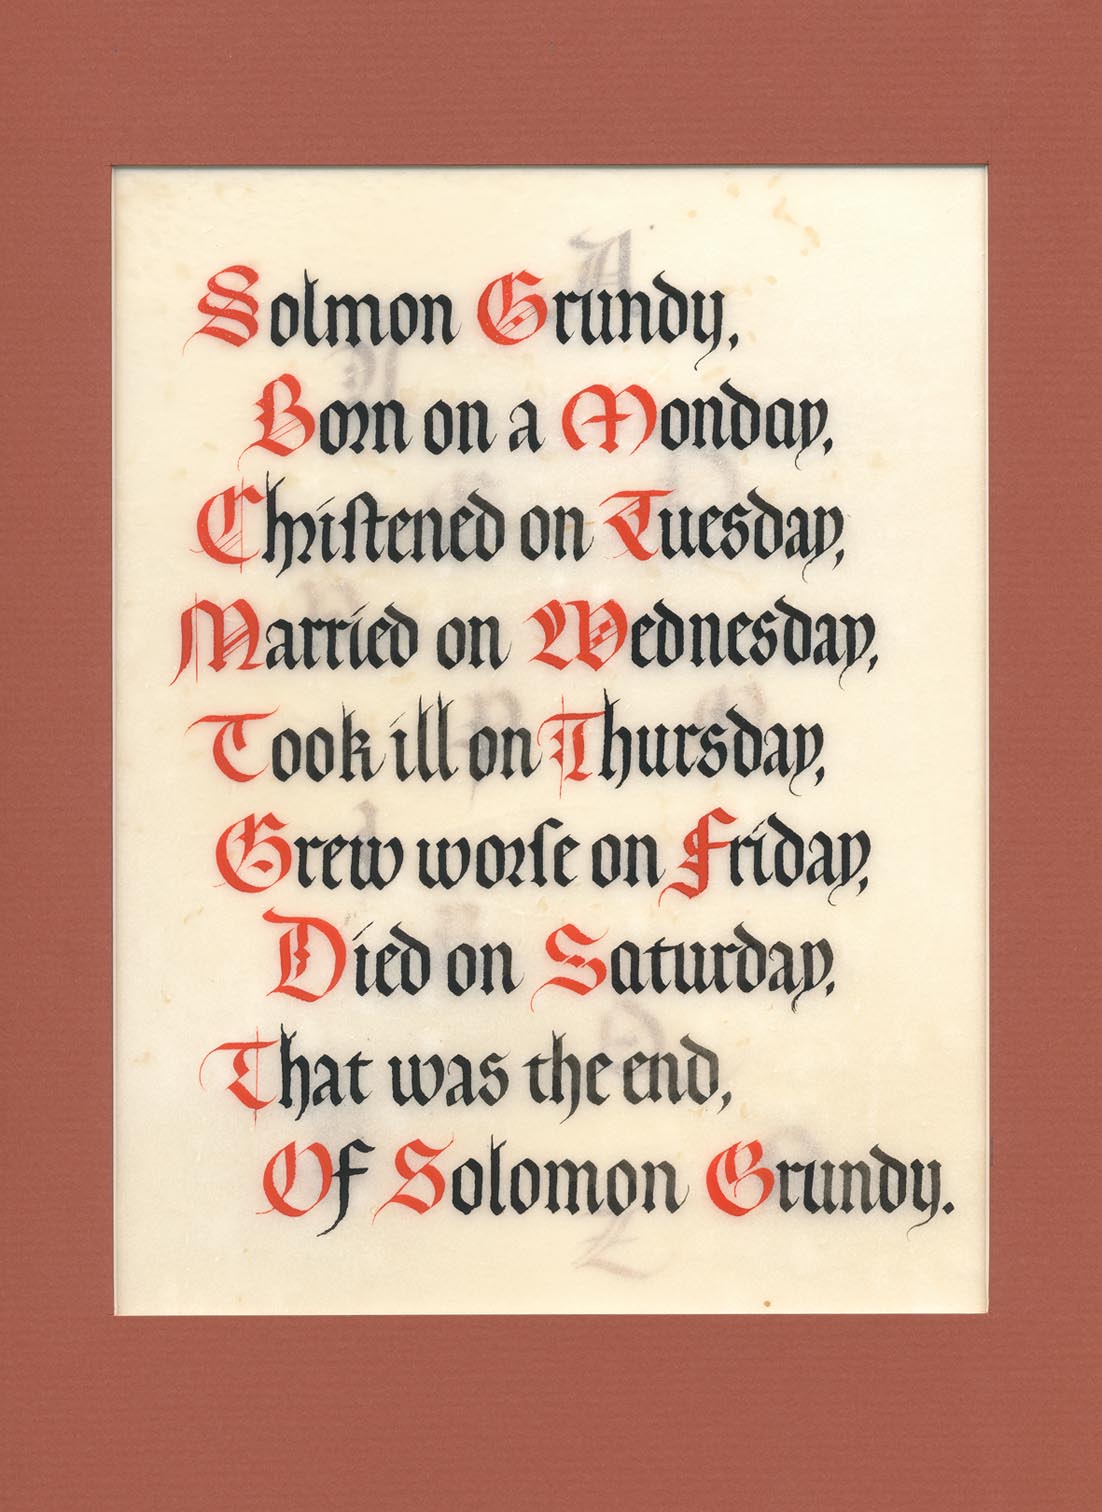 Solmon Grundy,
Born on a Monday,
Chriſtened on Tuesday,
Married on Wednesday,
Took ill on Thursday,
Grew worſe on Friday,
Died on Saturday,
That was the end,
Of Solomon Grundy.